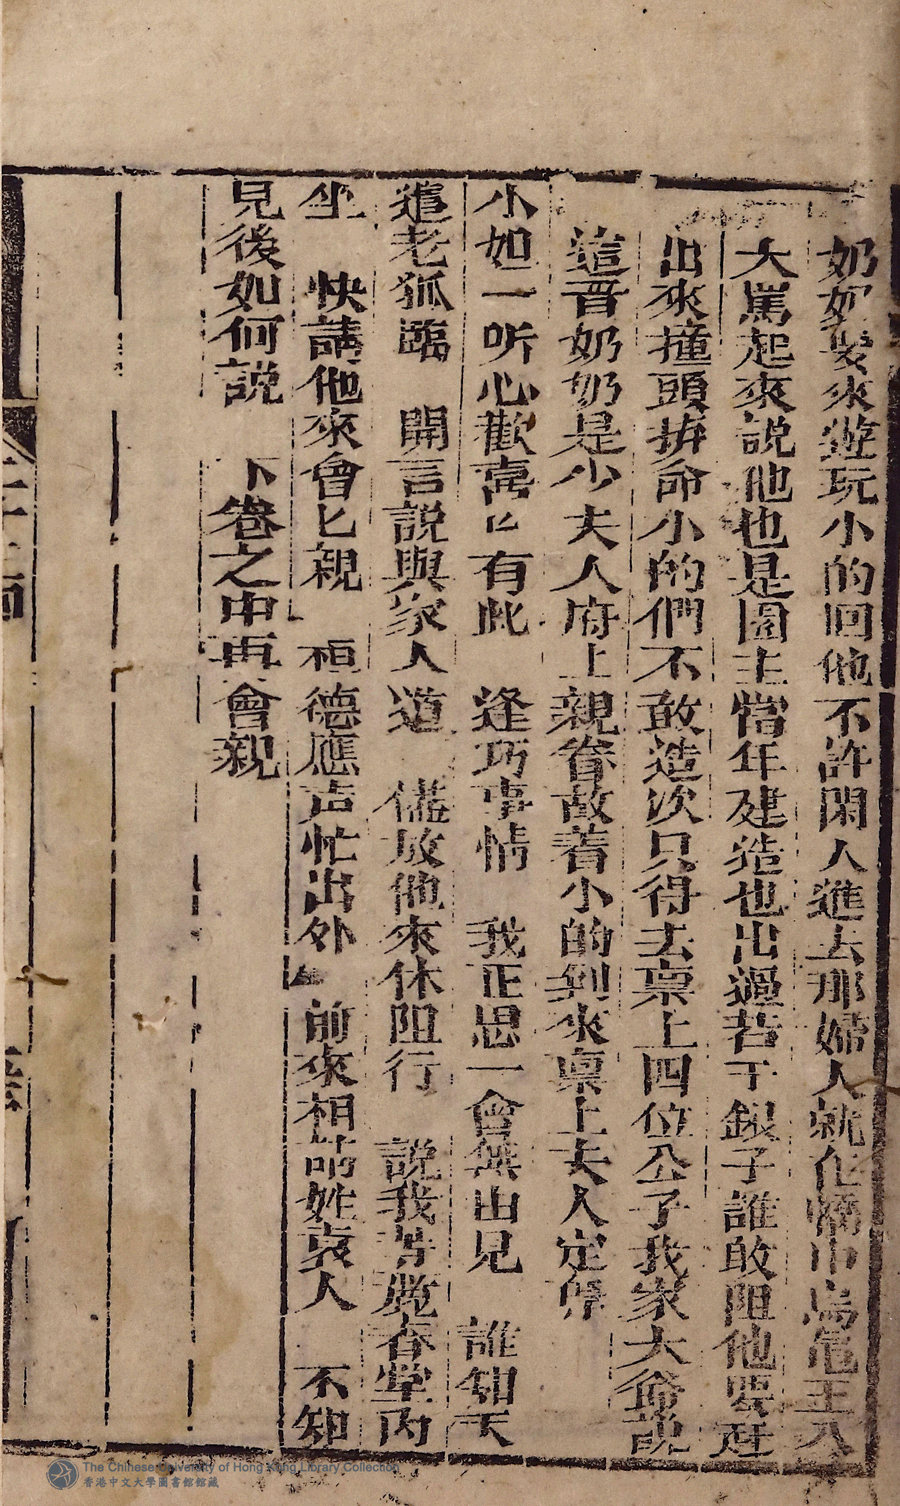 奶奶要來遊玩小的回他不許閑人進去那婦人就作惱巾烏亀王八
大罵起來説他也是園主當年建造也出過若干銀子誰敢阻他要赶
出來撞頭拚命小的們不敢造次只得去稟上四位公子我家大爺説
這晋奶奶是少夫人府上親眷故着小的到來稟上夫人定奪
小姐一听心歡喜匕有此　逢巧事情　我正思一會無由見　誰知天
遣老狐臨　開言説與家人道　儘放他來休阻行　説我苦荒春堂内
坐　快請他來會匕親　桓德應声忙出外　前來相請姓袁人　不知
見後如何説　下卷之中再會親
The Chinese University of Hong Kong Library Collection
香港中文大學圖書館館藏